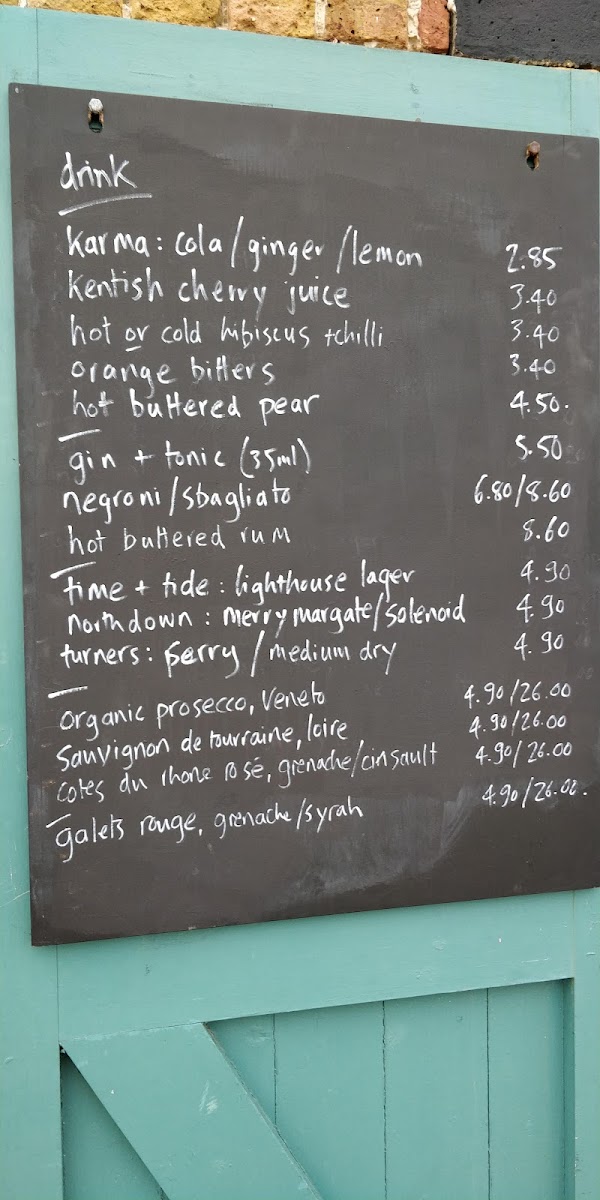 drink
karma: cola/ginger/lemon 2.85
kentish cherry juice 3.40
hot or cold hibiscus +chilli 3.40
orange bitters 3.40
hot buttered pear 4.50.
gin + tonic (35ml) 5.50
negroni/sbagliato 6.80/8.60
hot buttered rum 8.60
time + tide: lighthouse lager 4.90
northdown: merry margate/solenoid 4.90
turners: perry/medium dry 4.90
organic prosecco, veneto 4.90/26.00
sauvignon de tourraine, loire 4.90/26.00
cotes du rhone rosé, grenache/cinsault 4.90/26.00
galets rouge, grenache/syrah 4.90/26.00.